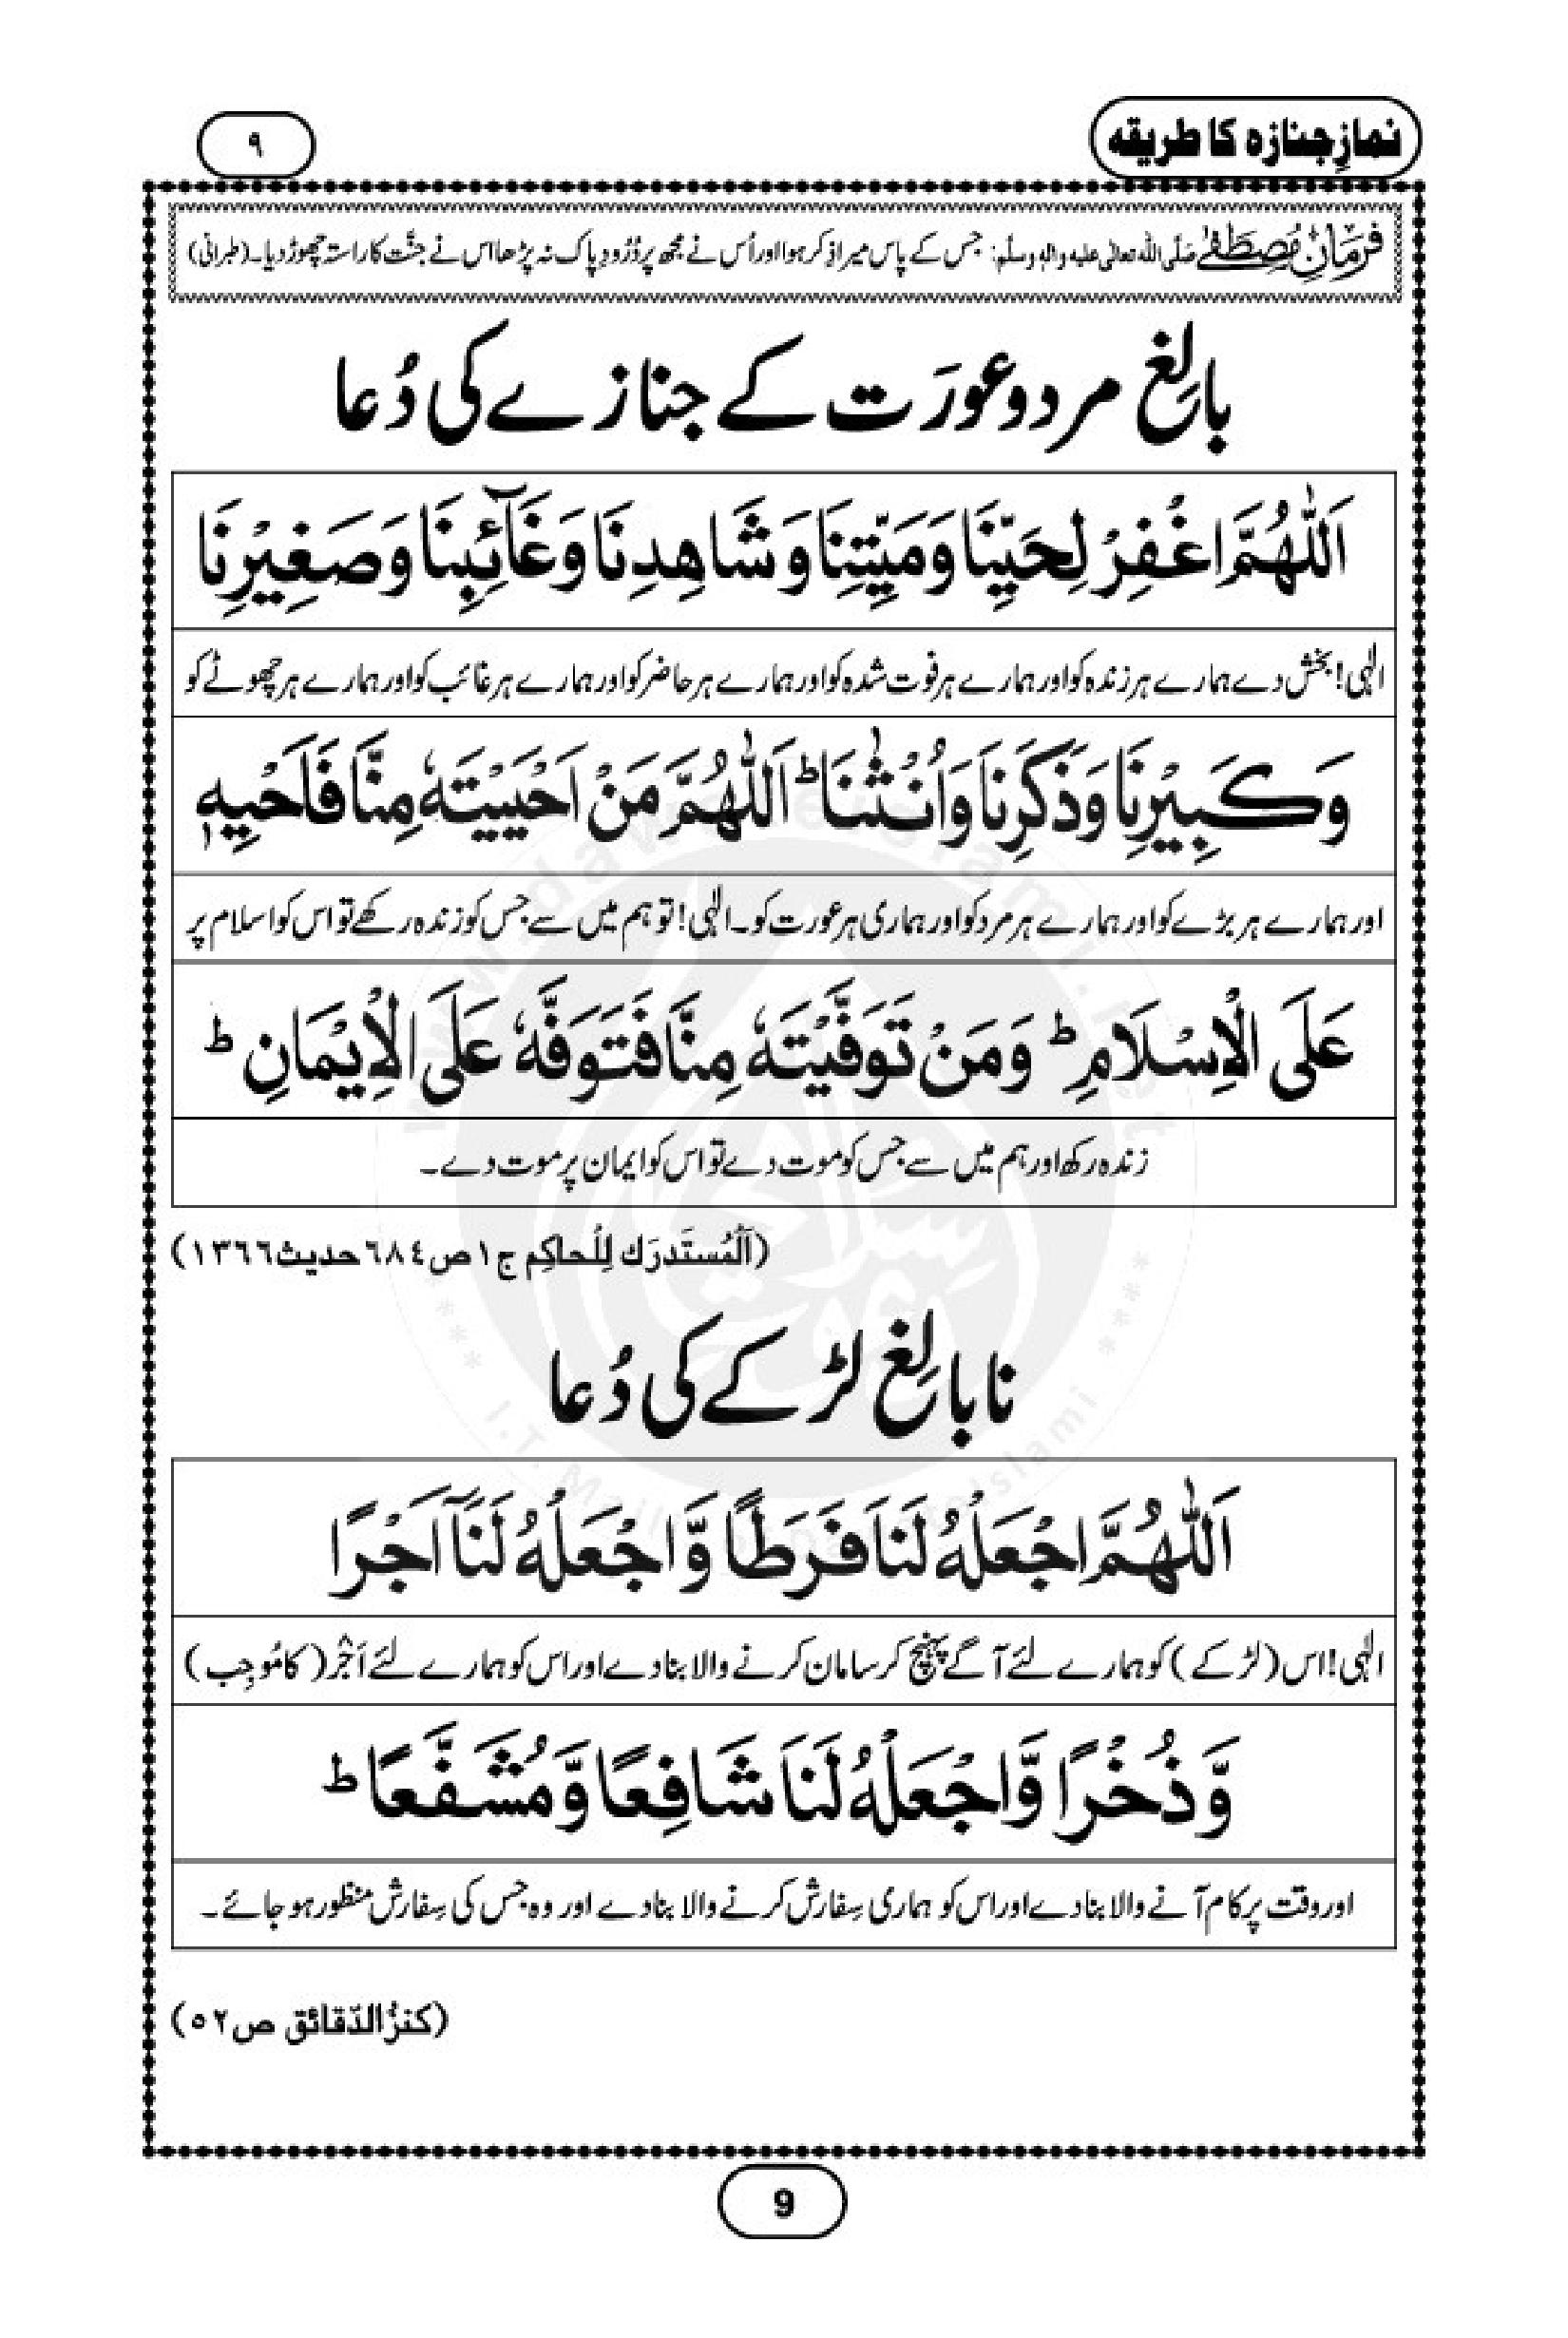 نمازِجنازہ کا طریقہ
۹
فرمانِ مصطفےٰ صَلَّی اللہ تعالٰی علیہ والہٖ وسلَّم: جس کے پاس میرا ذکر ہوا اور اُس نے مجھ پر دُرُودِ پاک نہ پڑھا اس نے جنَّت کا راستہ چھوڑ دیا۔ (طبرانی)
بالِغ مرد و عورَت کے جنازے کی دُعا
اَللّٰهُمَّ اغْفِرْ لِحَيِّنَا وَمَيِّتِنَا وَشَاهِدِنَا وَغَآئِبِنَا وَصَغِيْرِنَا
الٰہی! بخش دے ہمارے ہر زندہ کو اور ہمارے ہر فوت شدہ کو اور ہمارے ہر حاضر کو اور ہمارے ہر غائب کو اور ہمارے ہر چھوٹے کو
وَكَبِيْرِنَا وَذَكَرِنَا وَاُنْثٰنَا ؕ اَللّٰهُمَّ مَنْ اَحْيَيْتَهٗ مِنَّا فَاَحْيِهٖ
اور ہمارے ہر بڑے کو اور ہمارے ہر مرد کو اور ہماری ہر عورت کو۔ الٰہی! تو ہم میں سے جس کو زندہ رکھے تو اس کو اسلام پر
عَلَى الْاِسْلَامِ ؕ وَمَنْ تَوَفَّيْتَهٗ مِنَّا فَتَوَفَّهٗ عَلَى الْاِيْمَانِ ؕ
زندہ رکھ اور ہم میں سے جس کو موت دے تو اس کو ایمان پر موت دے۔
(اَلْمُستَدرَك لِلْحاکِم ج۱ص۶۸٤حدیث۱۳۶۶)
نابالِغ لڑکے کی دُعا
اَللّٰهُمَّ اجْعَلْهُ لَنَا فَرَطًا وَّاجْعَلْهُ لَنَآ اَجْرًا
الٰہی! اس (لڑکے) کو ہمارے لئے آگے پہنچ کر سامان کرنے والا بنادے اور اس کو ہمارے لئے اَجْر (کا مُوجِب)
وَّذُخْرًا وَّاجْعَلْهُ لَنَا شَافِعًا وَّمُشَفَّعًا ؕ
اور وقت پر کام آنے والا بنادے اور اس کو ہماری سِفارش کرنے والا بنادے اور وہ جس کی سِفارش منظور ہو جائے۔
(کنزُالدّقائق ص۵۲)
9